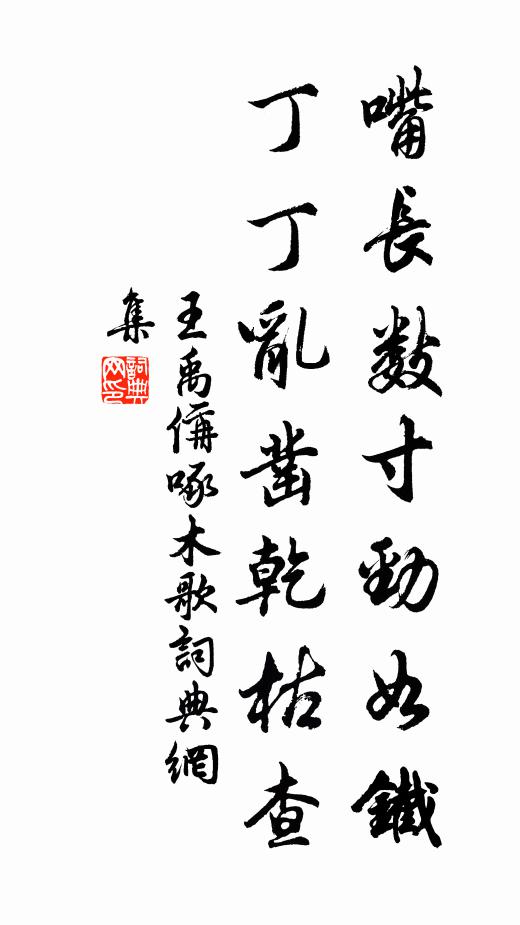 嘴長數寸勁如鐵
丁丁亂鑿乾枯查
王禹偁啄木歌詞典網
集
詞典網印